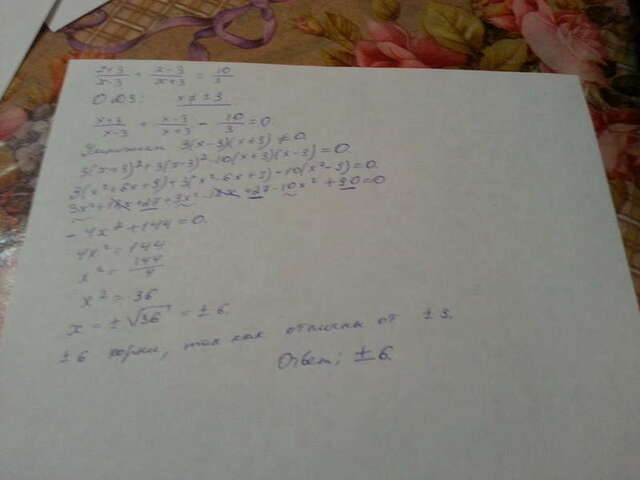 x+3/x-3 + x-3/x+3 = 10/3
ОДЗ: x ≠ ±3
x+3/x-3 + x-3/x+3 - 10/3 = 0
Умножим 3(x-3)(x+3) ≠ 0.
3(x+3)²+3(x-3)²-10(x+3)(x-3)=0.
3(x²+6x+9)+3(x²-6x+9)-10(x²-9)=0.
3x²+18x+27+3x²-18x+27-10x²+90=0
-4x²+144=0.
4x²=144
x²=144/4
x²=36
x=±√36=±6.
±6 корни, так как отличны от ±3.
Ответ: ±6